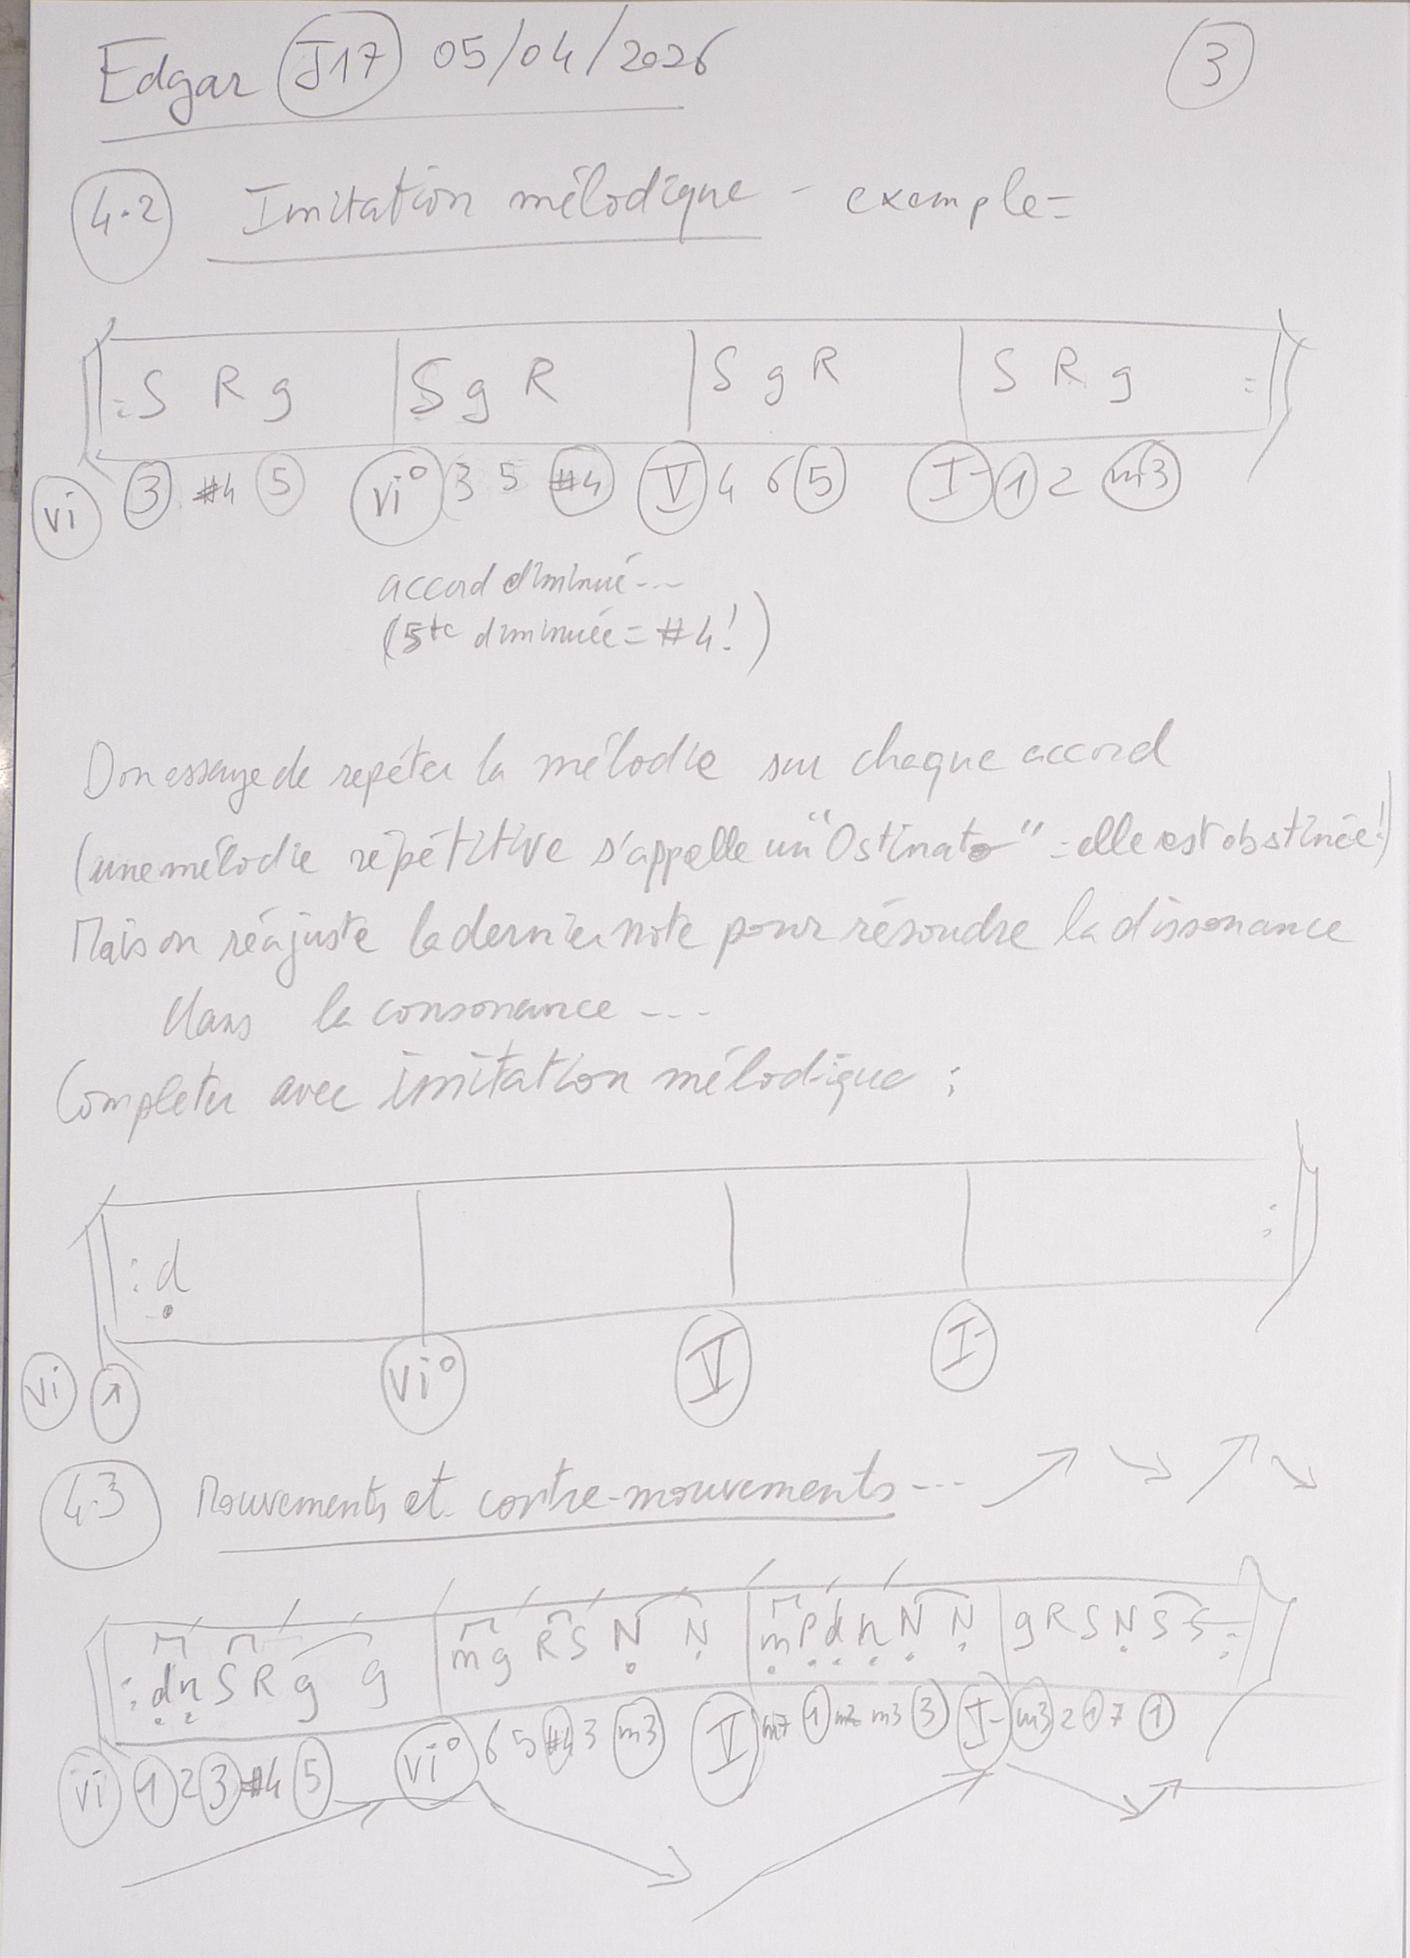 Edgar J17 05/04/2026 3
4.2 Imitation mélodique - exemple =
: S R g | S g R | S g R | S R g :
vi 3 #4 5 vi° 3 5 #4 V 4 6 5 I- 1 2 m3
accord diminué...
(5te diminuée = #4!)
Don essaye de repéter la mélodie sur chaque accord
(une mélodie répétitive s'appelle un "Ostinato" = elle est obstinée!)
Mais on réajuste la dernier note pour résoudre la dissonance
dans la consonance ...
Completer avec imitation mélodique :
: d | | | :
vi 1 vi° V I-
4.3 Mouvements et contre-mouvements... ↗ ↘ ↗ ↘
: d n S R g g | m g R S N N | m P d n N N | g R S N S S :
vi 1 2 3 #4 5 vi° 6 5 #4 3 m3 V m7 1 m2 m3 3 I- m3 2 1 7 1